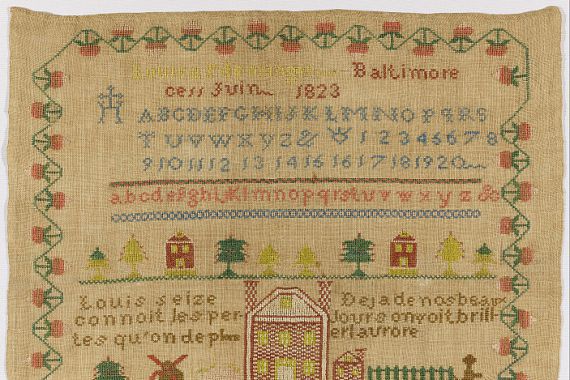 Baltimore
Juin 1823
ABCDEFGHIJKLMNOPQRS
TUVWXYZ& 1 2 3 4 5 6 7 8
9 10 11 12 13 14 15 16 17 18 19 20
abcdefghijklmnopqrstuvwxyz &c
Louis seize
connoit les per-
tes qu'on
Deja de nos beaux
jours on voit brill-
er l aurore